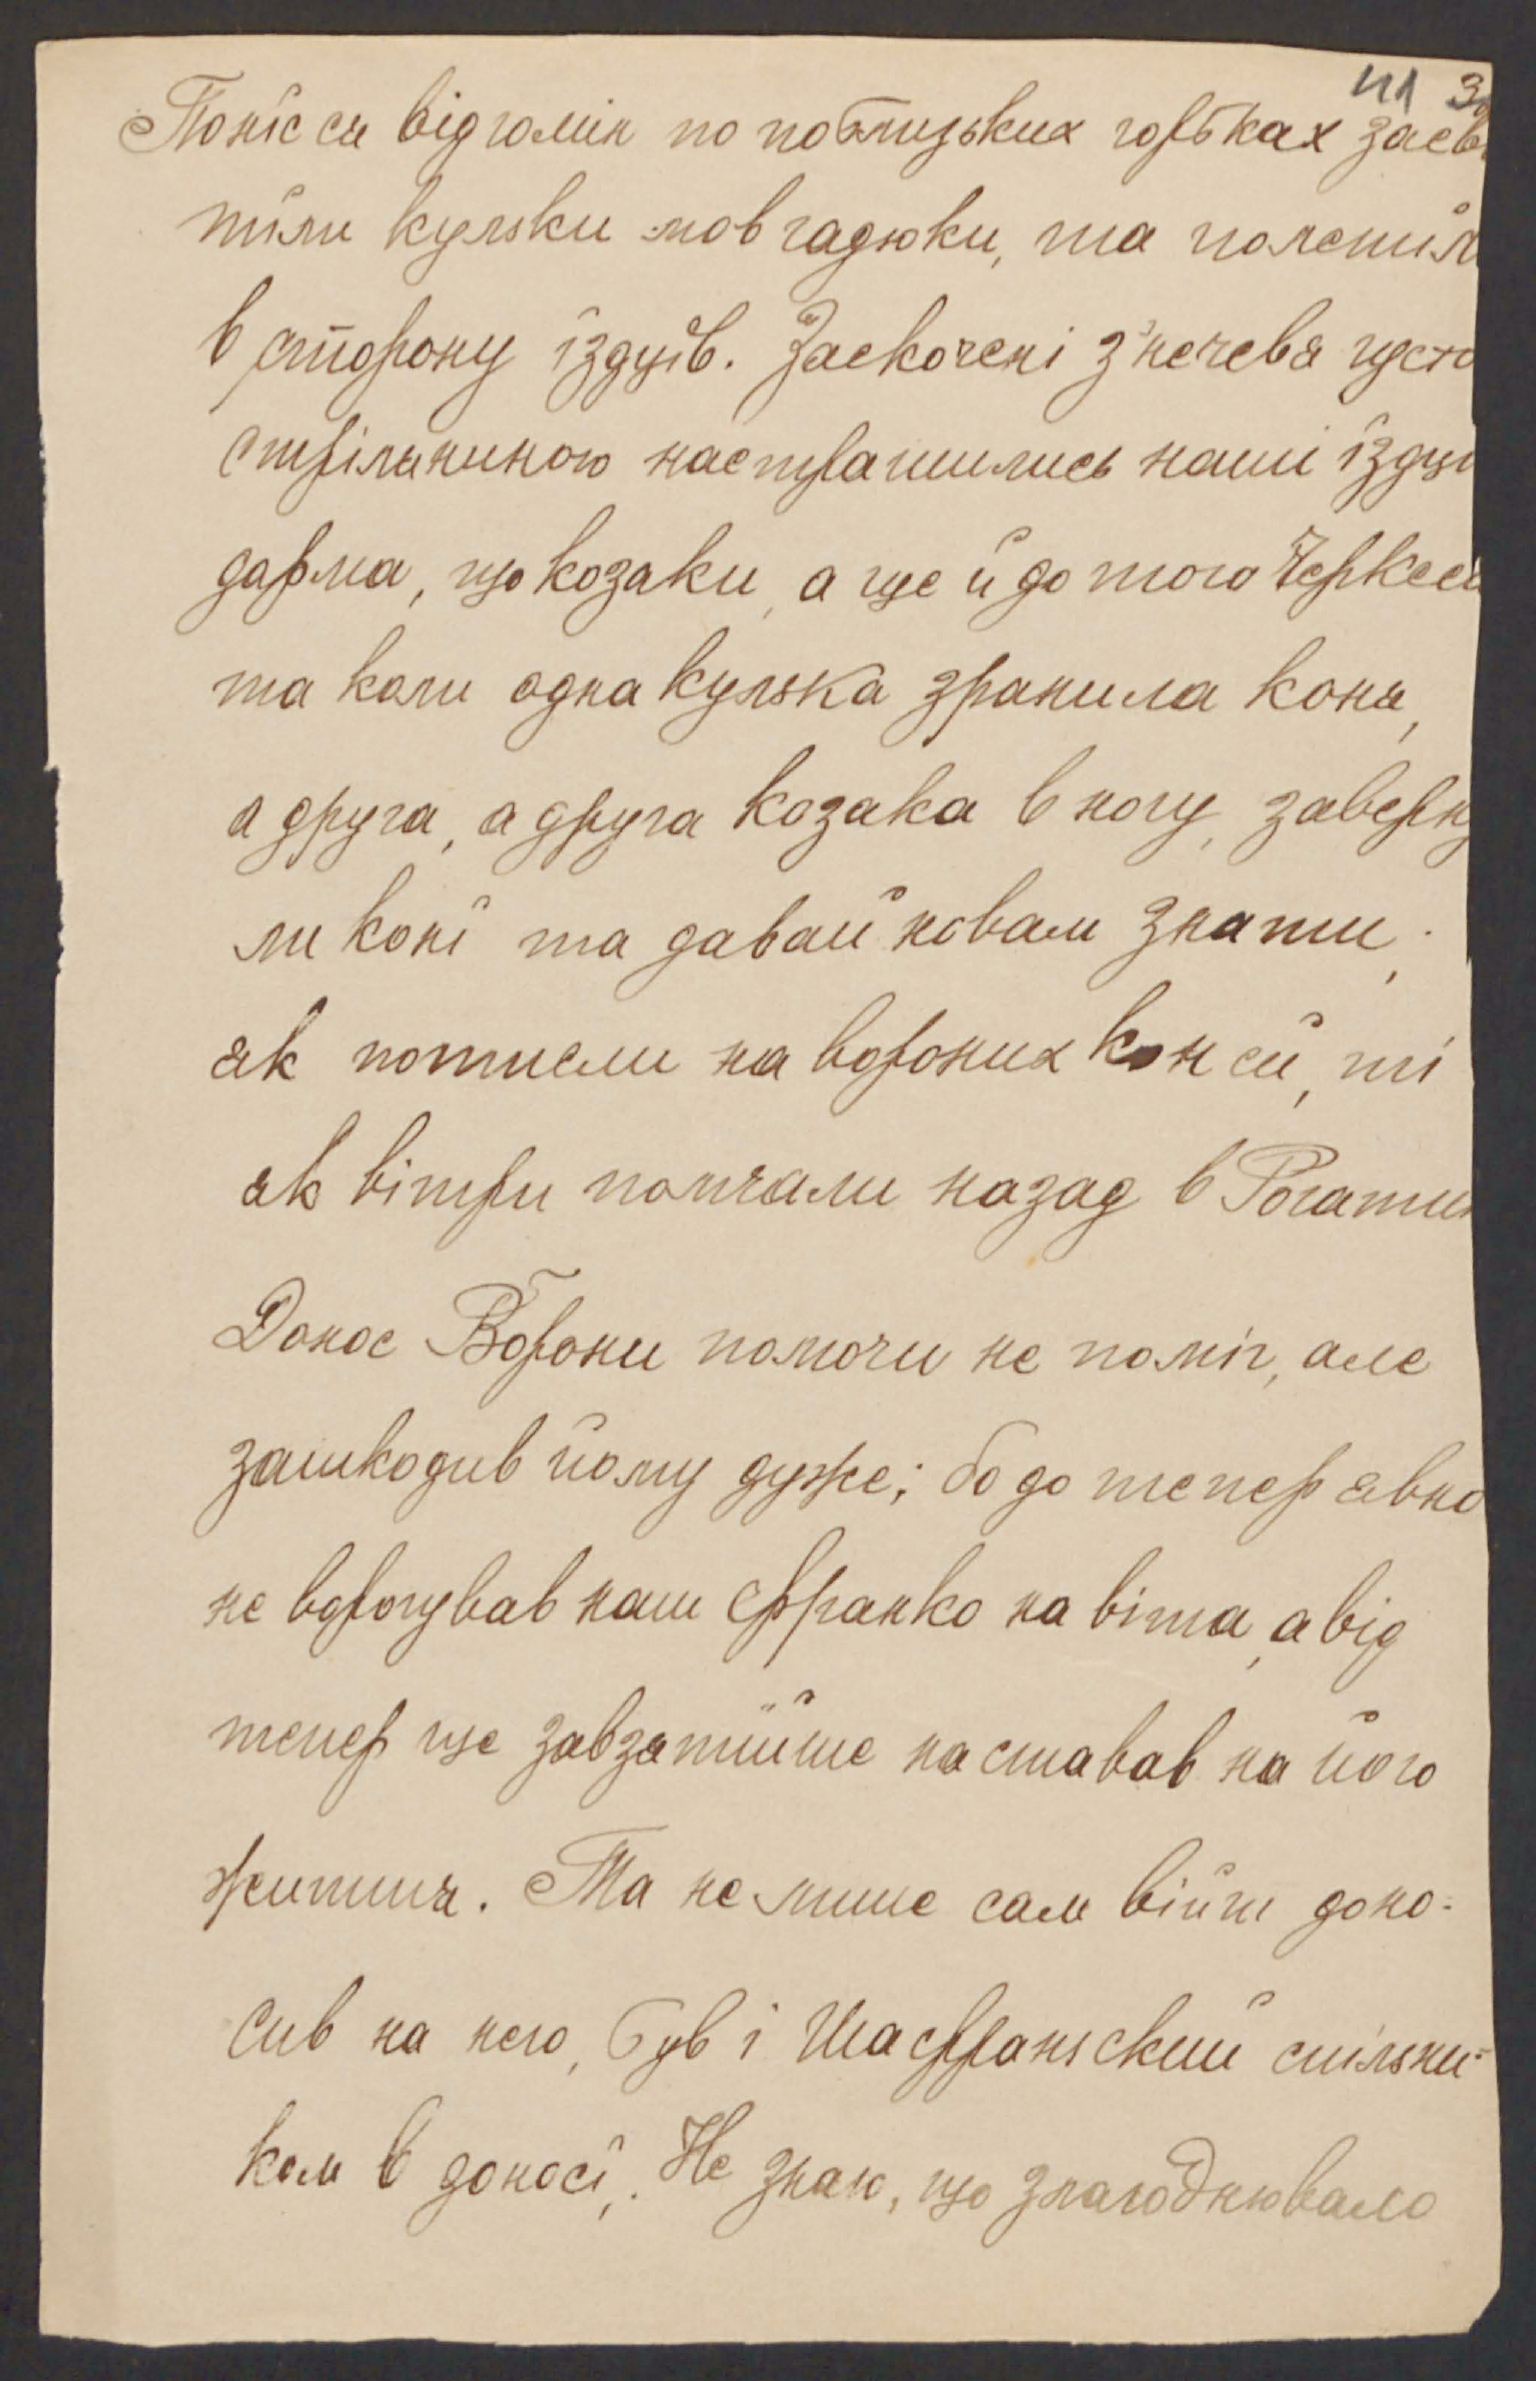 41 3
Понїс ся відгомін по поблизьких горбках засв
тїли кульки мов гадюки, та полетїл
в сторону їздцїв. Заскочені з'нечевя густо
стріляниною настрашились наші їздцї
дарма, що козаки, а ще й до того Черкеси
та коли одна кулька зранила коня,
а друга, а друга козака в ногу, заверну
ли конї та давай новам знати,
як потисли на вороних коней, ті
як вітри помчали назад в Рогатин
Донос Ворони помочи не поміг, але
зашкодив йому дуже; бо до тепер явно
не ворогував наш Франко на віта, а від
тепер ще завзятїйше наставав на його
життя. Та не лише сам війт доно-
сив на него, був і Шафранський спільни-
ком в доносї. Не знаю, що злагоднювало